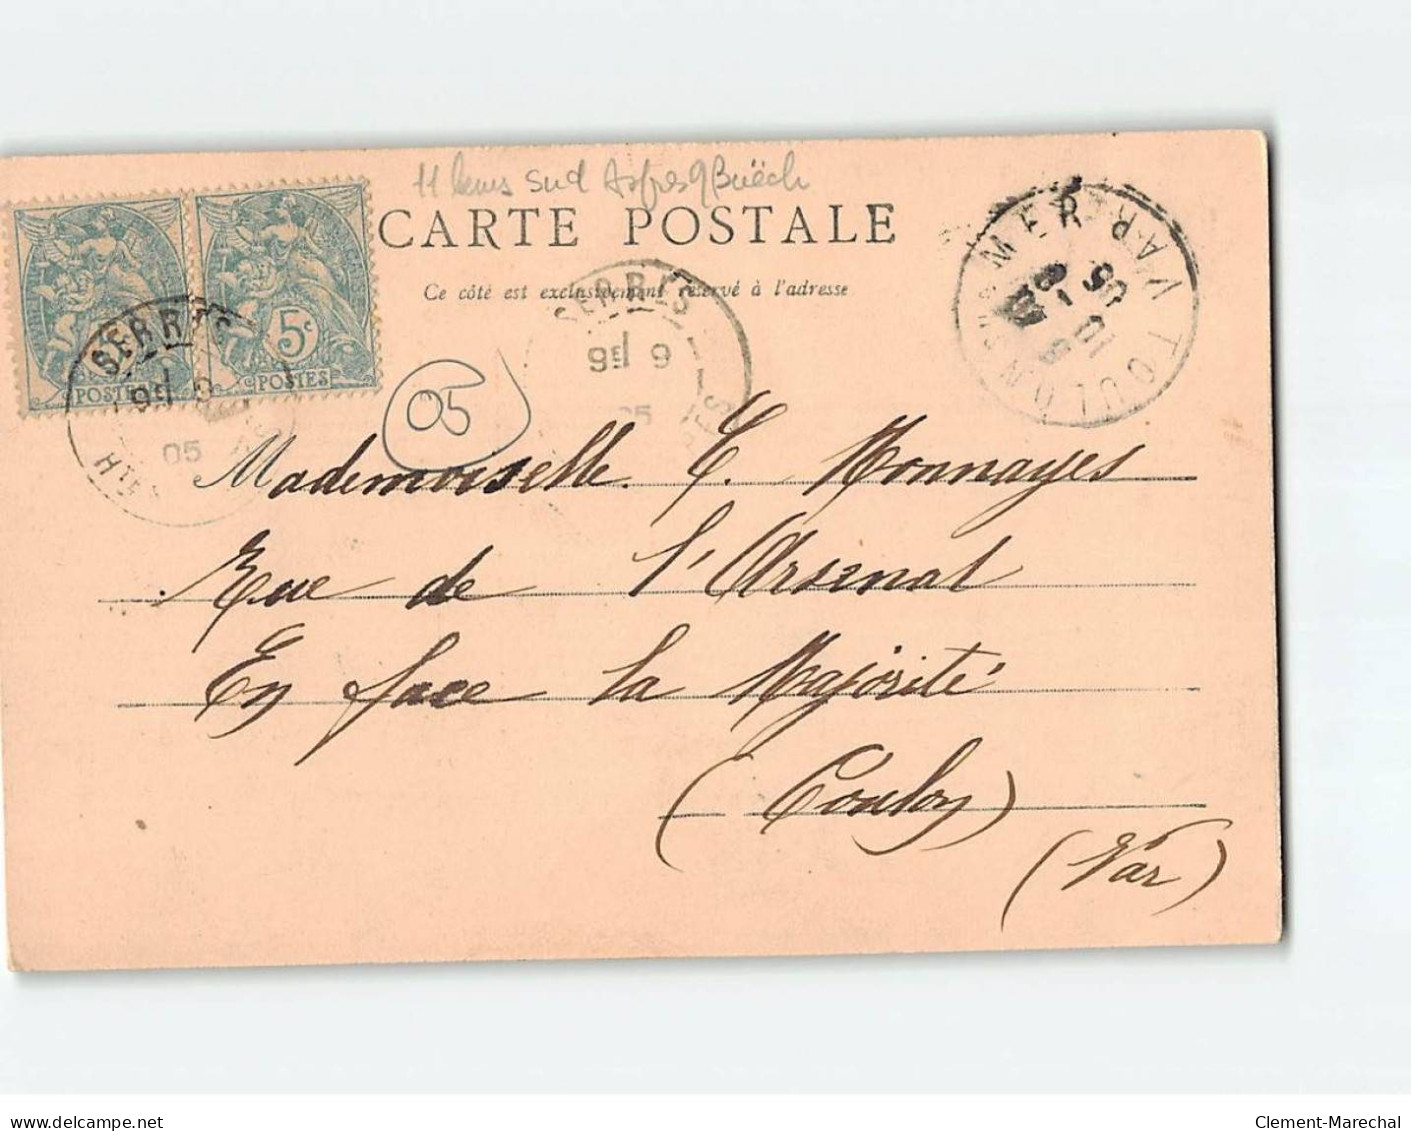 11 kms sud Aspres s/ Buëch
CARTE POSTALE
Ce côté est exclusivement réservé à l'adresse
5c
POSTES
POSTES
SERRES
05
SERRES
05
05
TOULON S MER VAR
Mademoiselle E. Monnayes
Rue de l'Arsenal
En face la Majorité
(Toulon)
(Var)
delcampe.net
Clement-Marechal